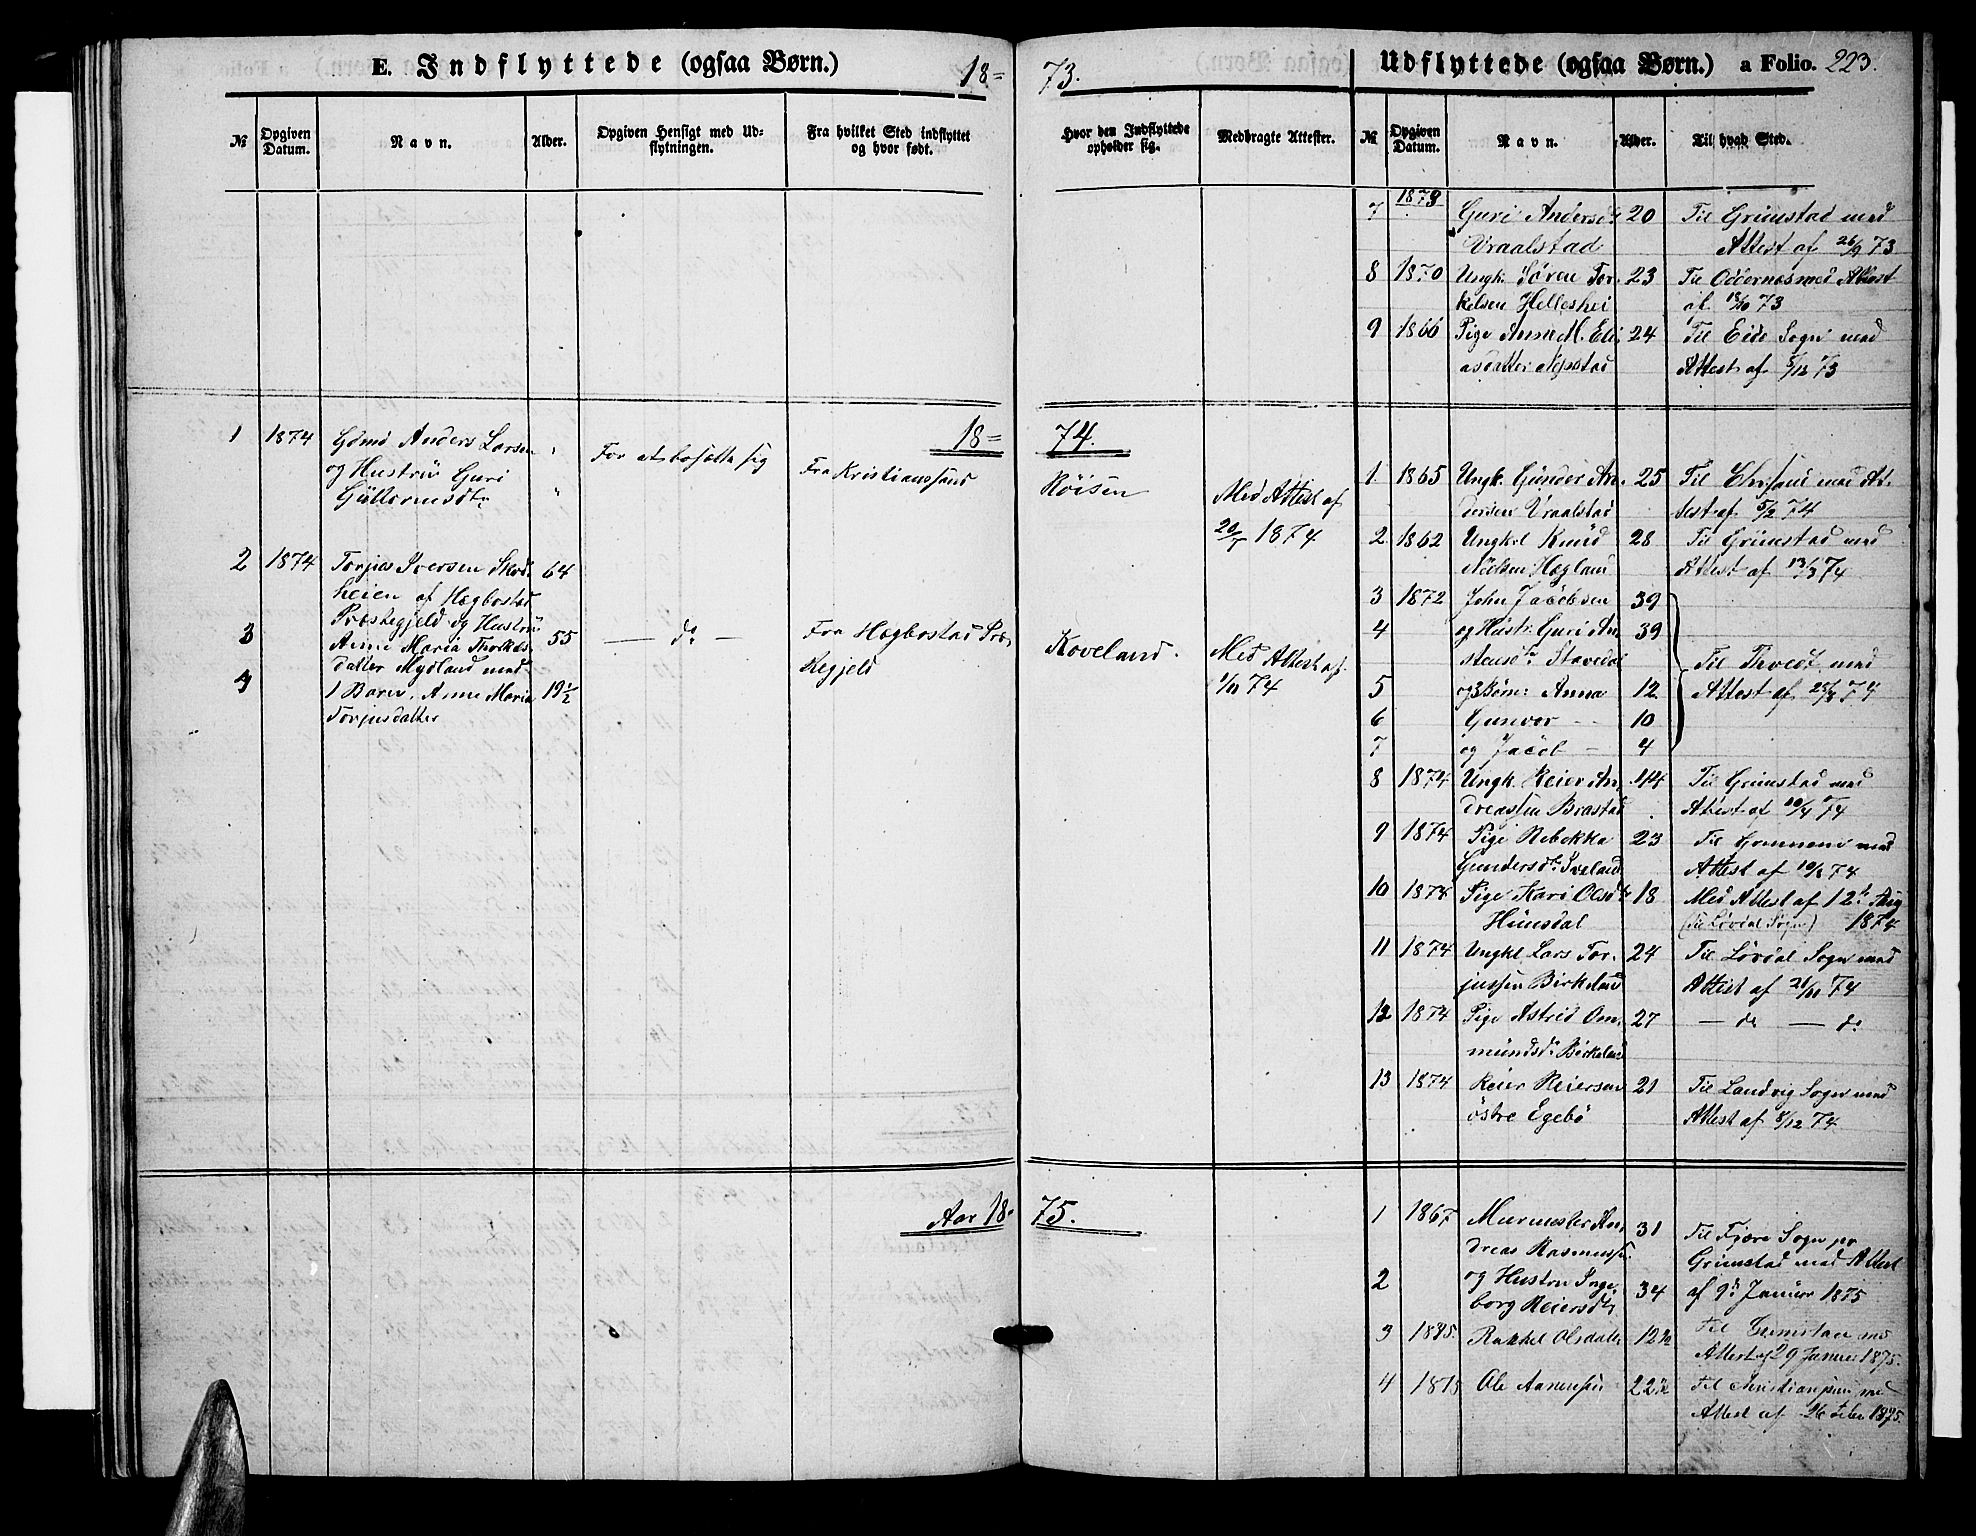 E. Indflyttede (ogsaa Børn.)
18=
73.
Udflyttede (ogsaa Børn.) a Folio. 223.
№
Opgiven Datum.
Navn.
Alder.
Opgiven Hensigt med Ud=
flytningen.
Fra hvilket Sted indflyttet
og hvor født.
Hvor den Indflyttede
opholder sig.
Medbragte Attester.
№
Opgiven Datum.
Navn.
Alder.
Til hvad Sted.
1873
7 Guri Andersdr 20 Til Grimstad med
Vraalstad Attest af 26/9 73
8 1870 Ungk. Søren Tor- 23 Til Oddernes med Attest
kelsen Helleshei af 13/10 73
9 1866 Pige Anna M. Eli- 24 Til Eide Sogn med
asdatter Nepstad Attest af 5/12 73
18=
74.
1 1874 Gdmd Anders Larsen "
og Hustru Guri
Guttormsdtr "
For at bosætte sig
Fra Kristianssand
Røisen
Med Attest af
1874
2 1874 Torjus Iversen 64
heien af Hægbostad
Præstegjeld og Hustru
3 Anne Maria 55
datter Mydland med
4 1 Barn, Anne Maria 19½
Torjusdatter
— do —
Fra Hægbostad Præ-
stegjeld
Koveland.
Med Attest af
1/10 74
1. 1865 Ungk. Gunder An- 25 Til Chrsand med At-
dersen Vraalstad test af 5/2 74
2. 1862 Ungkl Knud 28 Til Grimstad med
Nielsen Hægland Attest af 13/3 74
3 1872 John Jacobsen 39
4 og Hustr. Guri An- 39
stensdtr Stavedal
Til Thvedt med
5 og 3 Børn: Anna 12 Attest af 74
6 Gunvor - - 10
7 og Jacob - 4
8 1874 Ungk. Reier An- 44 Til Grimstad med
dreassen Brastad Attest af 10/4 74
9 1874 Pige Rebekka 23 Til med
Gundersdtr Iveland Attest af 74
10 1874 Pige Kari Olsdtr 18 Med Attest af 12te Aug
Hunsdal (til Løvdal Sogn) 1874
11 1874 Ungkl Lars Tor- 24 Til Løvdal Sogn med
jussen Birkeland Attest af 74
12 1874 Pige Astrid Om- 27 — do — do
mundsdr Birkeland
13 1874 Reier Reiersen 21 Til Landvig Sogn med
østre Egebø Attest af 8/12 74
Aar 18=
75.
1 1867 Murmester An- 31 Til Fjære Sogn pr
dreas Rasmussen Grimstad med Attest
2 og Hustru Inge- 34 af 9de Januar 1875
borg Reiersdtr
3 1875. Rakkel Olsdatter 12 Til Grimstad med
Attest af 29 Januar 1875.
4 1875 Ole Aanensen 22 Til Christianssand med
Attest af 26 Feber 1875.